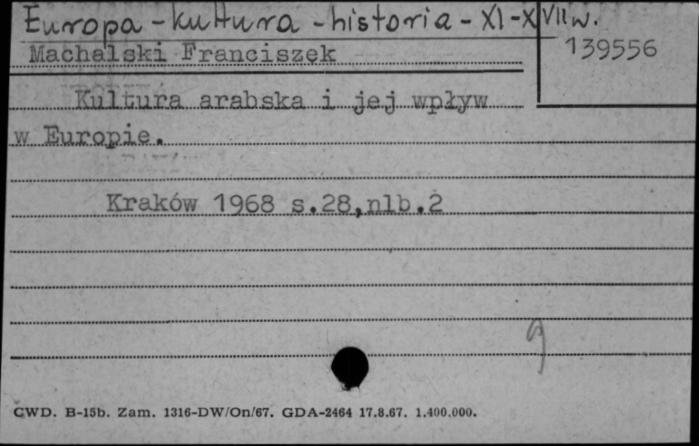 Europa - kultura - historia - XI - XVII w.
139556
Machalski Franciszek
Kultura arabska i jej wpływ
w Europie.
Kraków 1968 s.28,nlb.2
CWD. B-15b. Zam. 1316-DW/On/67. GDA-2464 17.8.67. 1.400.000.